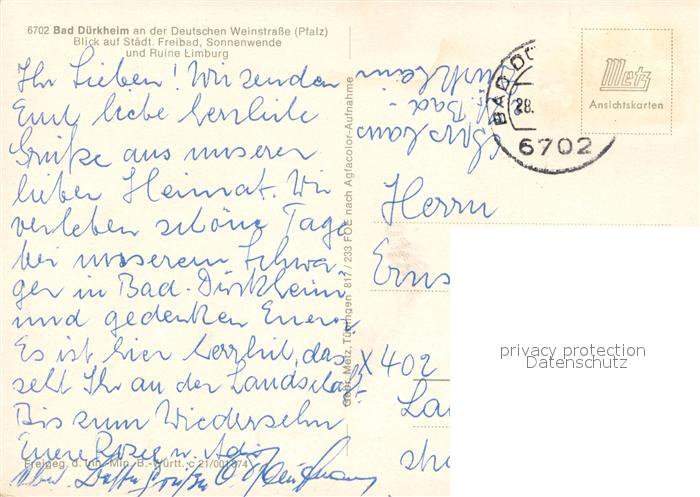 6702 Bad Dürkheim an der Deutschen Weinstraße (Pfalz)
Blick auf Städt. Freibad, Sonnenwende
und Ruine Limburg
Ihr Lieben! Wir senden
Euch liebe herzliche
Grüße aus unserer
lieben Heimat. Wir
verleben schöne Tage
bei unserem Schwa-
ger in Bad-Dürkheim
und gedenken Euer.
Es ist hier herrlich, das
seht Ihr an der Landschaft
Bis zum Wiedersehn
Eure
Freigeg. d. Inn.-Min. B.-Württ. C 21/001874
Gebr. Metz, Tübingen 817/233 FOE nach Agfacolor-Aufnahme
Metz
Ansichtskarten
BAD DÜ
28.
6702
Herrn
Erns
X 402
La
privacy protection
Datenschutz